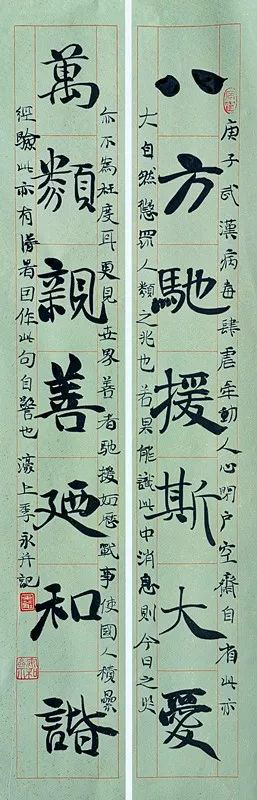 八方馳援斯大愛
萬類親善廼和諧
庚子武漢病毒肆虐牽動人心閉户空齋自省此亦
大自然懲罰人類之兆也若果能識此中消息則今日之災
亦不為枉度耳更見世界善者馳援如歷戰事使國人積纍
經驗此亦有勝者因作此句自警也濠上季永并記